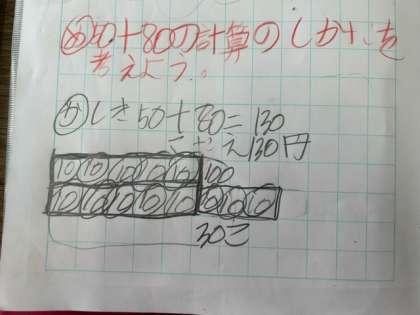 め 50+80の計算のしかたを
考えよう。
か しき 50+80=130
こたえ130円
10 10 10 10 10 100
10 10 10 10 10 10 10 10
30こ